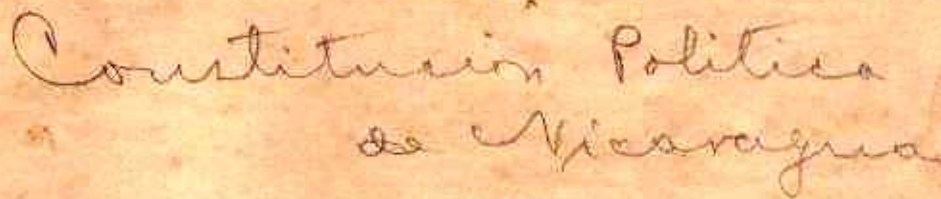 Constitución Politica
de Nicaragua